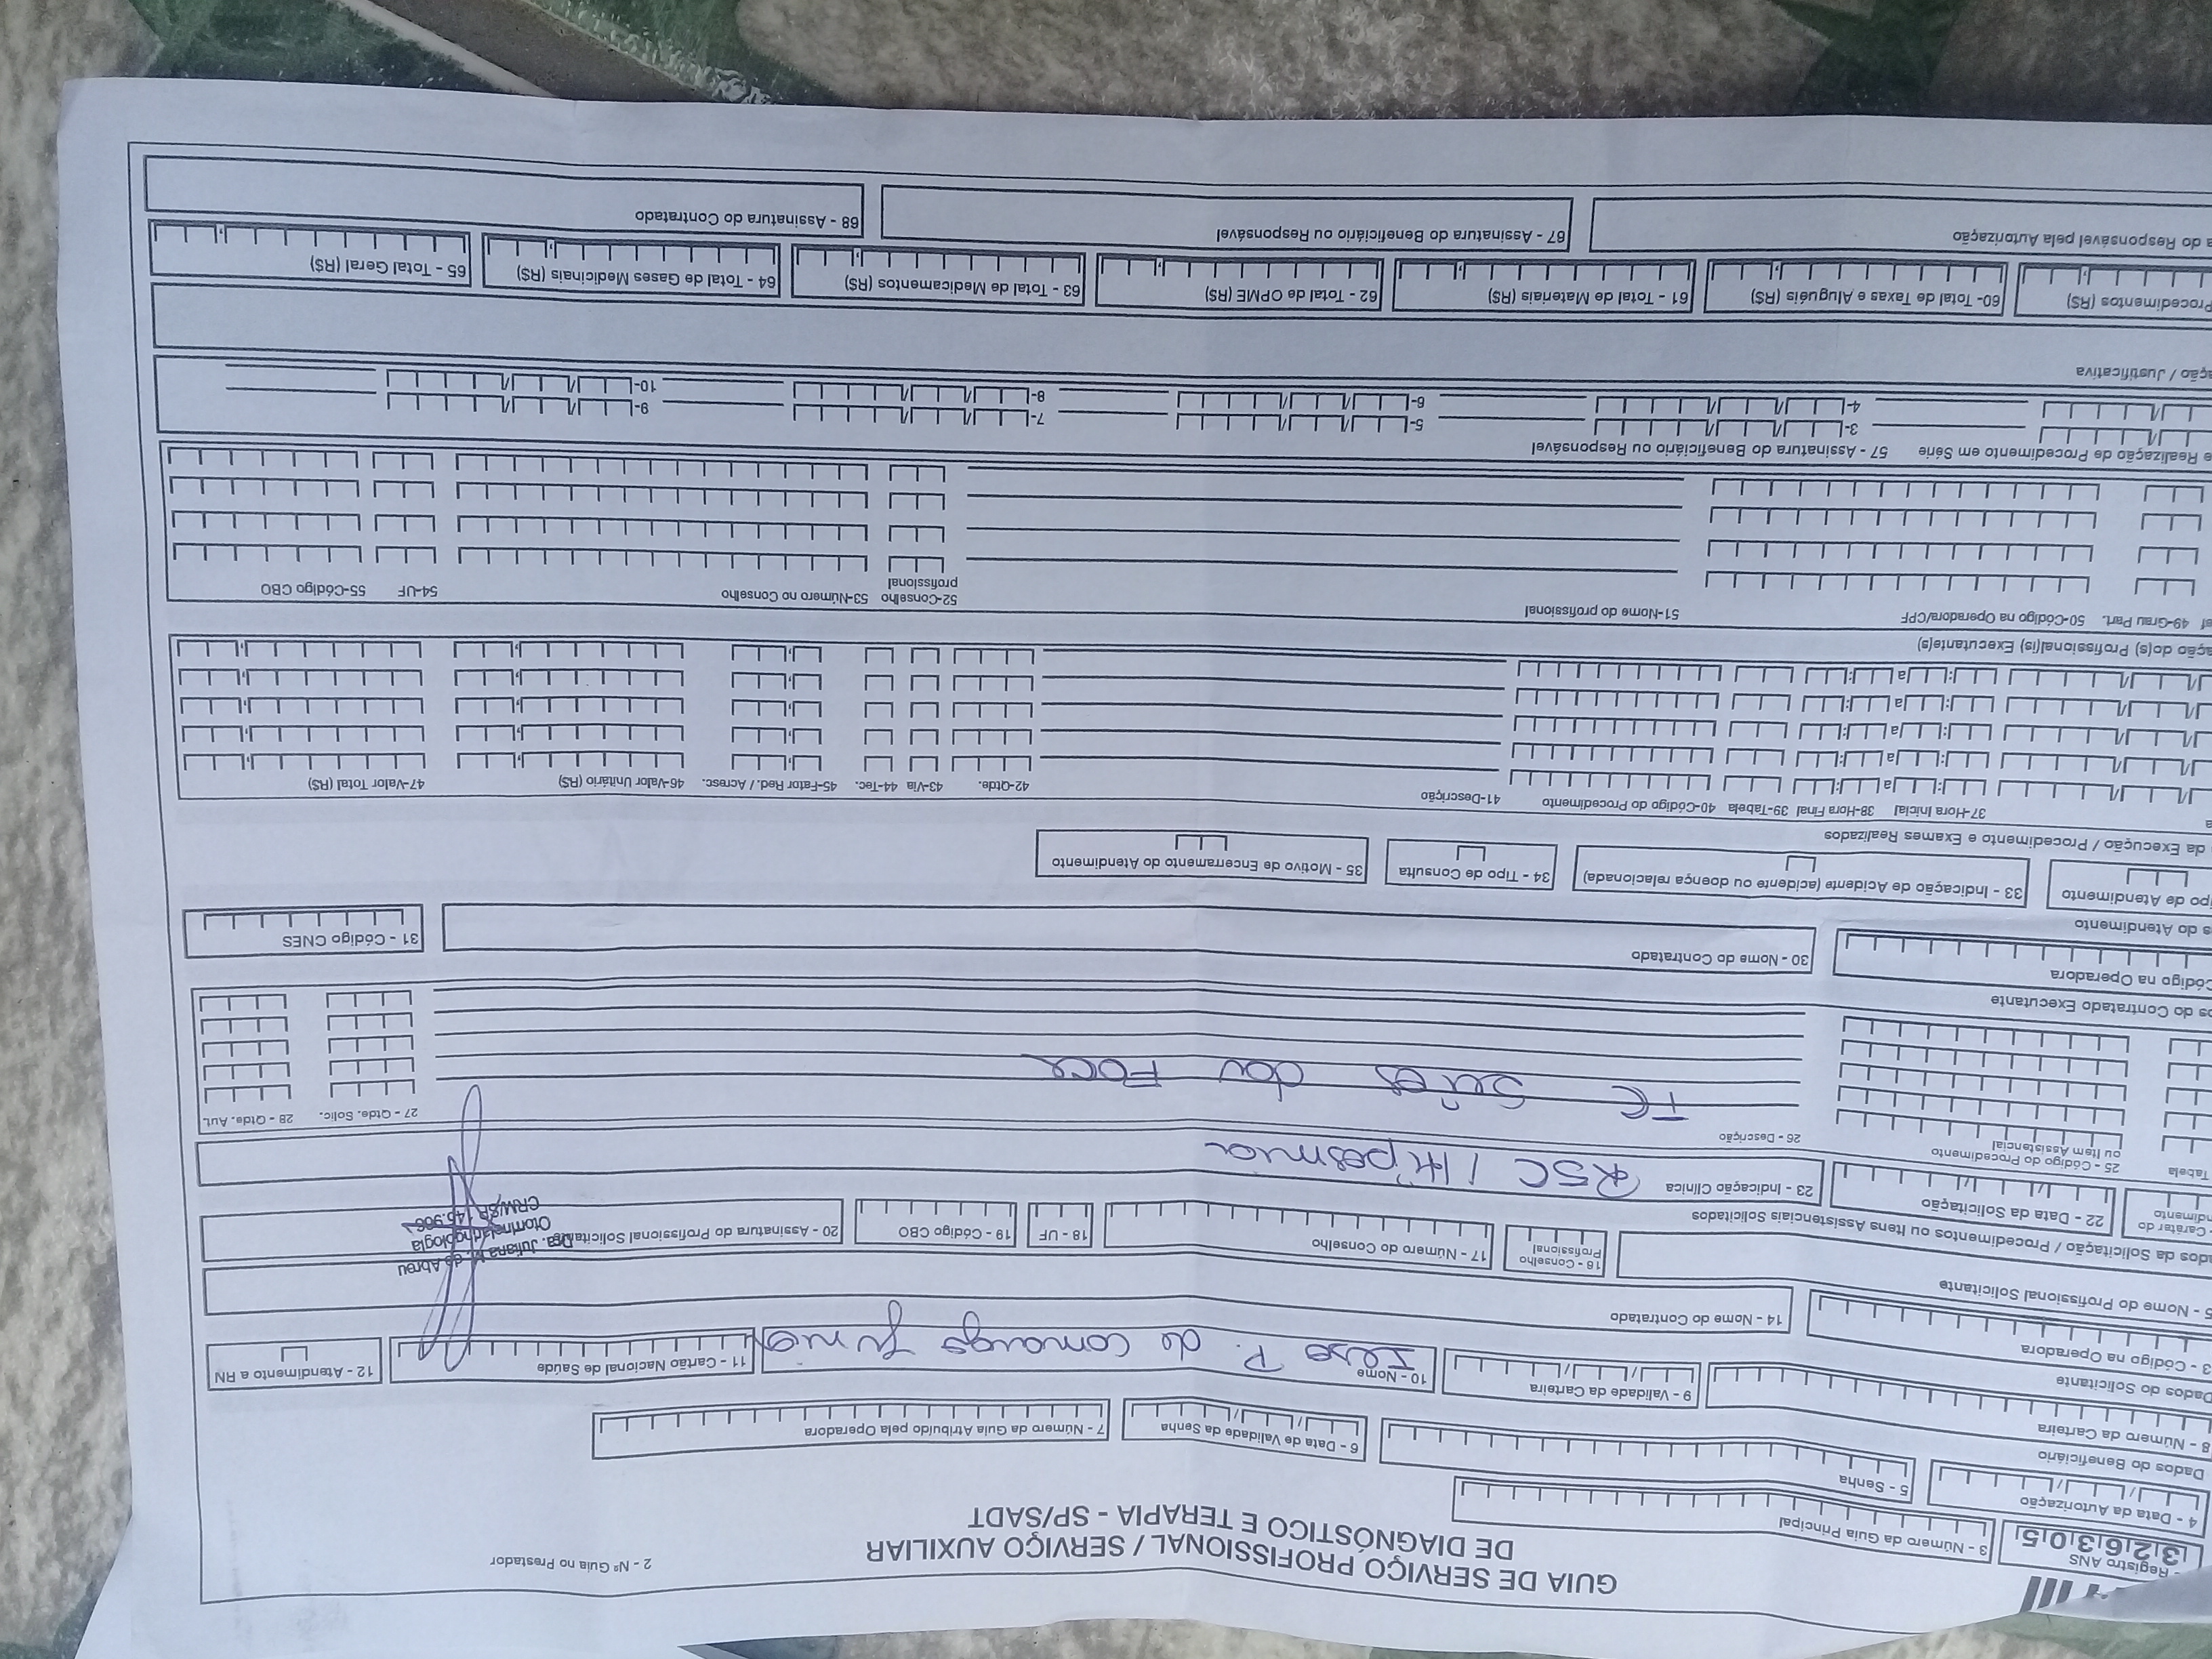 GUIA DE SERVIÇO PROFISSIONAL / SERVIÇO AUXILIAR
DE DIAGNÓSTICO E TERAPIA - SP/SADT
2 - Nº Guia no Prestador
Registro ANS
326305
3 - Número da Guia Principal
4 - Data da Autorização
5 - Senha
6 - Data de Validade da Senha
7 - Número da Guia Atribuído pela Operadora
Dados do Beneficiário
8 - Número da Carteira
9 - Validade da Carteira
10 - Nome
P. de Camargo Junior
11 - Cartão Nacional de Saúde
12 - Atendimento a RN
Dados do Solicitante
3 - Código na Operadora
14 - Nome do Contratado
5 - Nome do Profissional Solicitante
16 - Conselho
Profissional
17 - Número do Conselho
18 - UF
19 - Código CBO
20 - Assinatura do Profissional Solicitante
Dra. Juliana M. de Abreu
Otorrinolaringologia
CRM/SP
ados da Solicitação / Procedimentos ou Itens Assistenciais Solicitados
Caráter do
ndimento
22 - Data da Solicitação
23 - Indicação Clínica
RSC / Hiposmia
Tabela
25 - Código do Procedimento
ou Item Assistencial
26 - Descrição
27 - Qtde. Solic.
28 - Qtde. Aut.
TC Seios da Face
os do Contratado Executante
Código na Operadora
30 - Nome do Contratado
31 - Código CNES
s do Atendimento
ipo de Atendimento
33 - Indicação de Acidente (acidente ou doença relacionada)
34 - Tipo de Consulta
35 - Motivo de Encerramento do Atendimento
da Execução / Procedimento e Exames Realizados
a
37-Hora Inicial
38-Hora Final
39-Tabela
40-Código do Procedimento
41-Descrição
42-Qtde.
43-Via
44-Tec.
45-Fator Red. / Acresc.
46-Valor Unitário (R$)
47-Valor Total (R$)
a
a
a
a
a
ação do(s) Profissional(is) Executante(s)
ef
49-Grau Part.
50-Código na Operadora/CPF
51-Nome do profissional
52-Conselho
profissional
53-Número no Conselho
54-UF
55-Código CBO
e Realização de Procedimento em Série
57 - Assinatura do Beneficiário ou Responsável
3-
5-
7-
9-
4-
6-
8-
10-
ação / Justificativa
Procedimentos (R$)
60- Total de Taxas e Aluguéis (R$)
61 - Total de Materiais (R$)
62 - Total de OPME (R$)
63 - Total de Medicamentos (R$)
64 - Total de Gases Medicinais (R$)
65 - Total Geral (R$)
a do Responsável pela Autorização
67 - Assinatura do Beneficiário ou Responsável
68 - Assinatura do Contratado